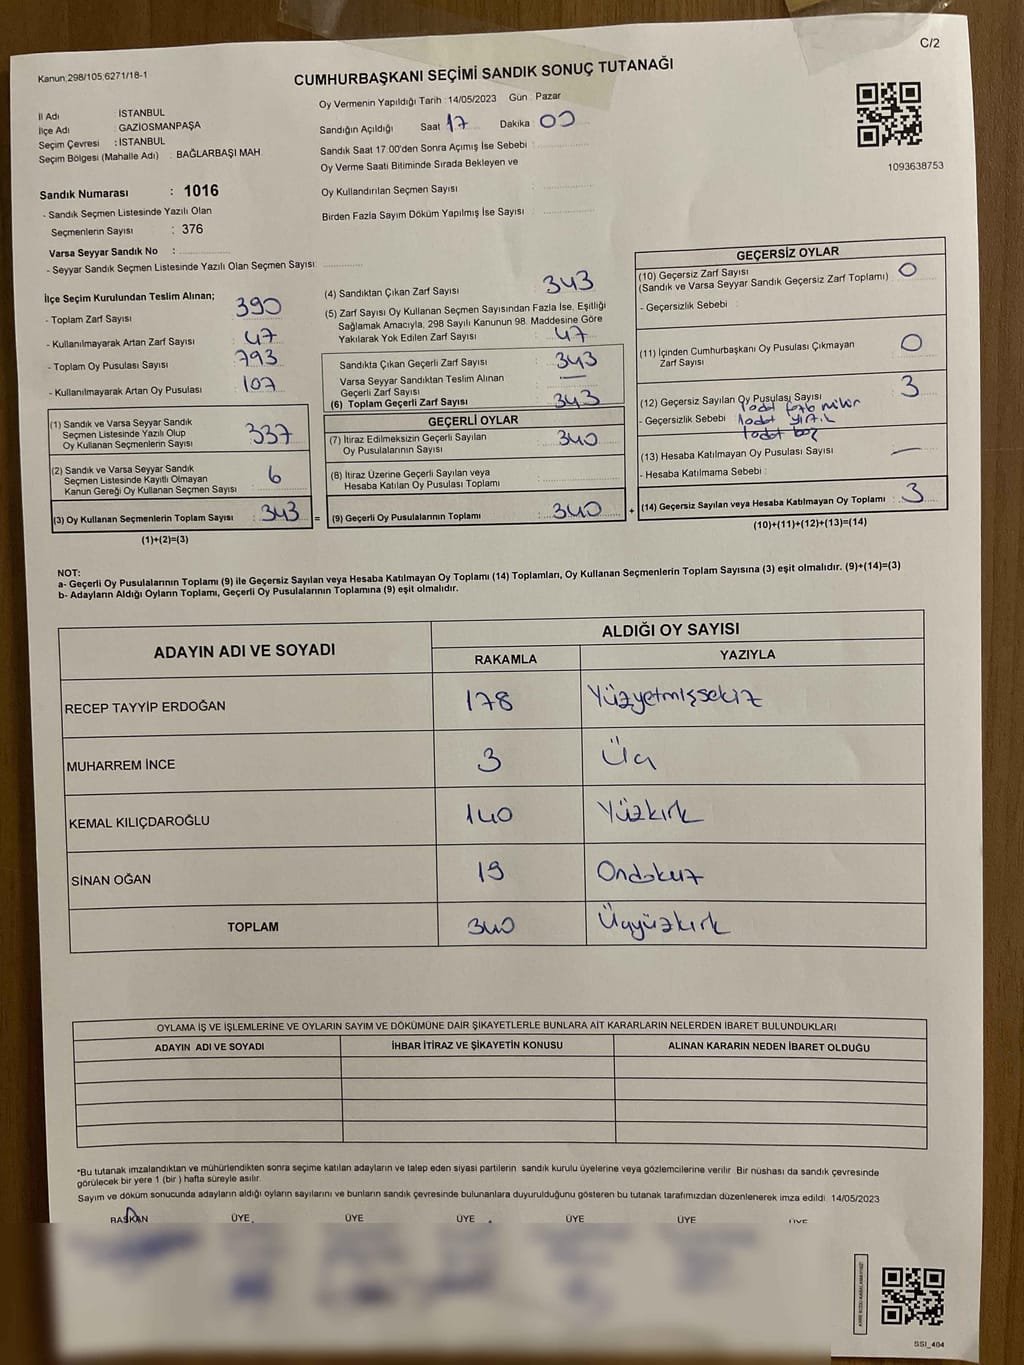 C/2
Kanun,298/105,6271/18-1
CUMHURBAŞKANI SEÇİMİ SANDIK SONUÇ TUTANAĞI
İl Adı : İSTANBUL
İlçe Adı : GAZİOSMANPAŞA
Seçim Çevresi : İSTANBUL
Seçim Bölgesi (Mahalle Adı) : BAĞLARBAŞI MAH.
Oy Vermenin Yapıldığı Tarih : 14/05/2023 Gün : Pazar
Sandığın Açıldığı Saat 17 Dakika 00
Sandık Saat 17:00'den Sonra Açımış İse Sebebi :
Oy Verme Saati Bitiminde Sırada Bekleyen ve
Oy Kullandırılan Seçmen Sayısı
Birden Fazla Sayım Döküm Yapılmış İse Sayısı
1093638753
Sandık Numarası : 1016
- Sandık Seçmen Listesinde Yazılı Olan
Seçmenlerin Sayısı : 376
Varsa Seyyar Sandık No :
- Seyyar Sandık Seçmen Listesinde Yazılı Olan Seçmen Sayısı:
İlçe Seçim Kurulundan Teslim Alınan;
- Toplam Zarf Sayısı : 390
- Kullanılmayarak Artan Zarf Sayısı : 47
- Toplam Oy Pusulası Sayısı : 793
- Kullanılmayarak Artan Oy Pusulası : 107
(1) Sandık ve Varsa Seyyar Sandık
Seçmen Listesinde Yazılı Olup
Oy Kullanan Seçmenlerin Sayısı : 337
(2) Sandık ve Varsa Seyyar Sandık
Seçmen Listesinde Kayıtlı Olmayan
Kanun Gereği Oy Kullanan Seçmen Sayısı : 6
(3) Oy Kullanan Seçmenlerin Toplam Sayısı : 343 =
(1)+(2)=(3)
(4) Sandıktan Çıkan Zarf Sayısı : 343
(5) Zarf Sayısı Oy Kullanan Seçmen Sayısından Fazla İse, Eşitliği
Sağlamak Amacıyla, 298 Sayılı Kanunun 98. Maddesine Göre
Yakılarak Yok Edilen Zarf Sayısı : 47
Sandıkta Çıkan Geçerli Zarf Sayısı : 343
Varsa Seyyar Sandıktan Teslim Alınan
Geçerli Zarf Sayısı : —
(6) Toplam Geçerli Zarf Sayısı : 343
GEÇERLİ OYLAR
(7) İtiraz Edilmeksizin Geçerli Sayılan
Oy Pusulalarının Sayısı : 340
(8) İtiraz Üzerine Geçerli Sayılan veya
Hesaba Katılan Oy Pusulası Toplamı :
(9) Geçerli Oy Pusulalarının Toplamı : 340 +
GEÇERSİZ OYLAR
(10) Geçersiz Zarf Sayısı : 0
(Sandık ve Varsa Seyyar Sandık Geçersiz Zarf Toplamı)
- Geçersizlik Sebebi :
(11) İçinden Cumhurbaşkanı Oy Pusulası Çıkmayan
Zarf Sayısı : 0
(12) Geçersiz Sayılan Oy Pusulası Sayısı : 3
1 adet fazla mühür
- Geçersizlik Sebebi : 1 adet yırtık
1 adet boş
(13) Hesaba Katılmayan Oy Pusulası Sayısı : —
- Hesaba Katılmama Sebebi :
(14) Geçersiz Sayılan veya Hesaba Katılmayan Oy Toplamı : 3
(10)+(11)+(12)+(13)=(14)
NOT:
a- Geçerli Oy Pusulalarının Toplamı (9) ile Geçersiz Sayılan veya Hesaba Katılmayan Oy Toplamı (14) Toplamları, Oy Kullanan Seçmenlerin Toplam Sayısına (3) eşit olmalıdır. (9)+(14)=(3)
b- Adayların Aldığı Oyların Toplamı, Geçerli Oy Pusulalarının Toplamına (9) eşit olmalıdır.
ADAYIN ADI VE SOYADI
ALDIĞI OY SAYISI
RAKAMLA YAZIYLA
RECEP TAYYİP ERDOĞAN 178 Yüzyetmişsekiz
MUHARREM İNCE 3 Üç
KEMAL KILIÇDAROĞLU 140 Yüzkırk
SİNAN OĞAN 19 Ondokuz
TOPLAM 340 Üçyüzkırk
OYLAMA İŞ VE İŞLEMLERİNE VE OYLARIN SAYIM VE DÖKÜMÜNE DAİR ŞİKAYETLERLE BUNLARA AİT KARARLARIN NELERDEN İBARET BULUNDUKLARI
ADAYIN ADI VE SOYADI İHBAR İTİRAZ VE ŞİKAYETİN KONUSU ALINAN KARARIN NEDEN İBARET OLDUĞU
*Bu tutanak imzalandıktan ve mühürlendikten sonra seçime katılan adayların ve talep eden siyasi partilerin sandık kurulu üyelerine veya gözlemcilerine verilir. Bir nüshası da sandık çevresinde
görülecek bir yere 1 (bir ) hafta süreyle asılır.
Sayım ve döküm sonucunda adayların aldığı oyların sayılarını ve bunların sandık çevresinde bulunanlara duyurulduğunu gösteren bu tutanak tarafımızdan düzenlenerek imza edildi. 14/05/2023
BAŞKAN ÜYE ÜYE ÜYE ÜYE ÜYE ÜYE
SSI_404